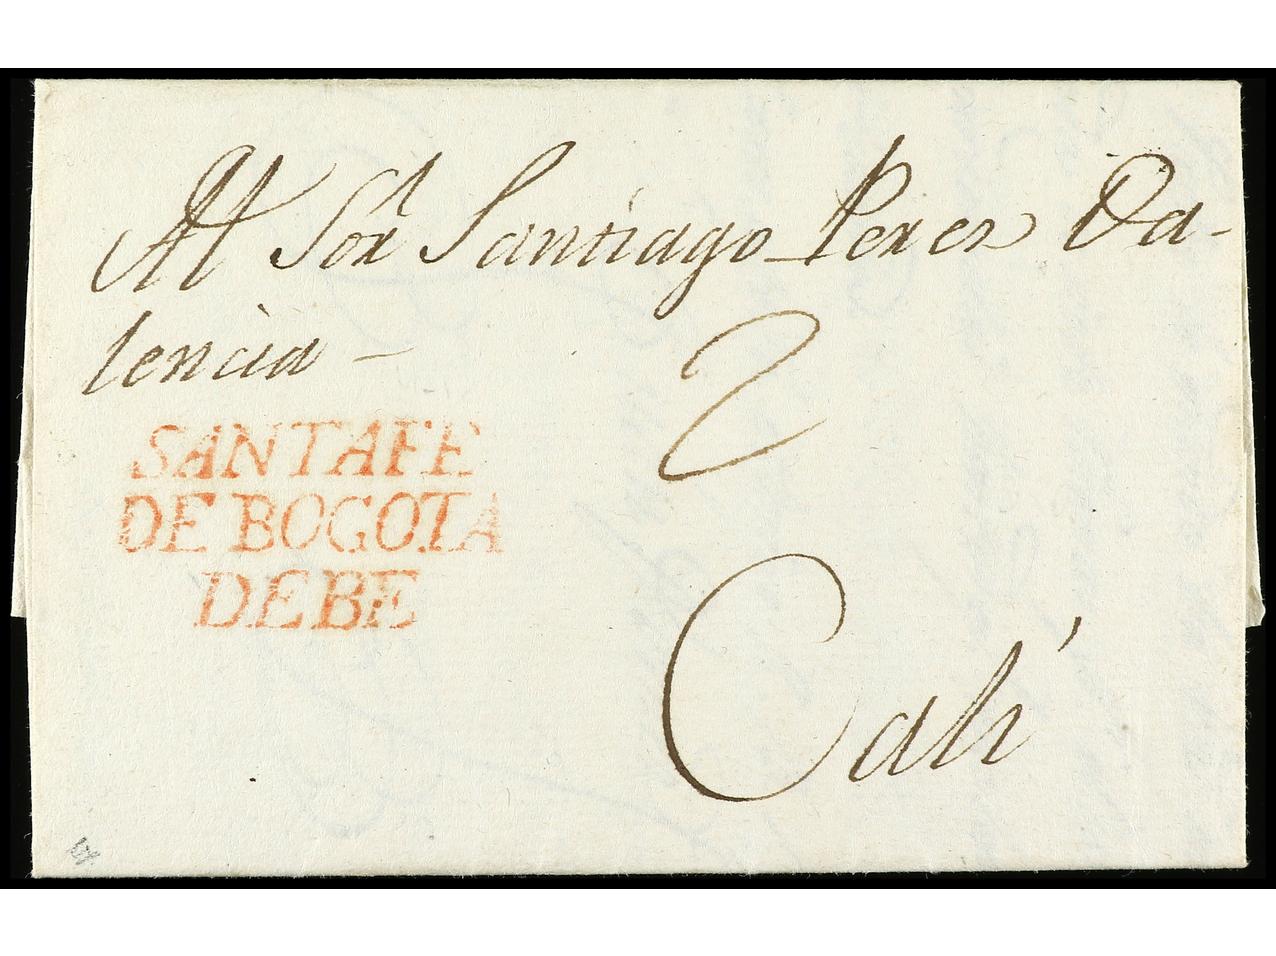 Al Sor Santiago Perez Va-
lencia -
2
SANTAFE
DE BOGOTA
DEBE
Cali